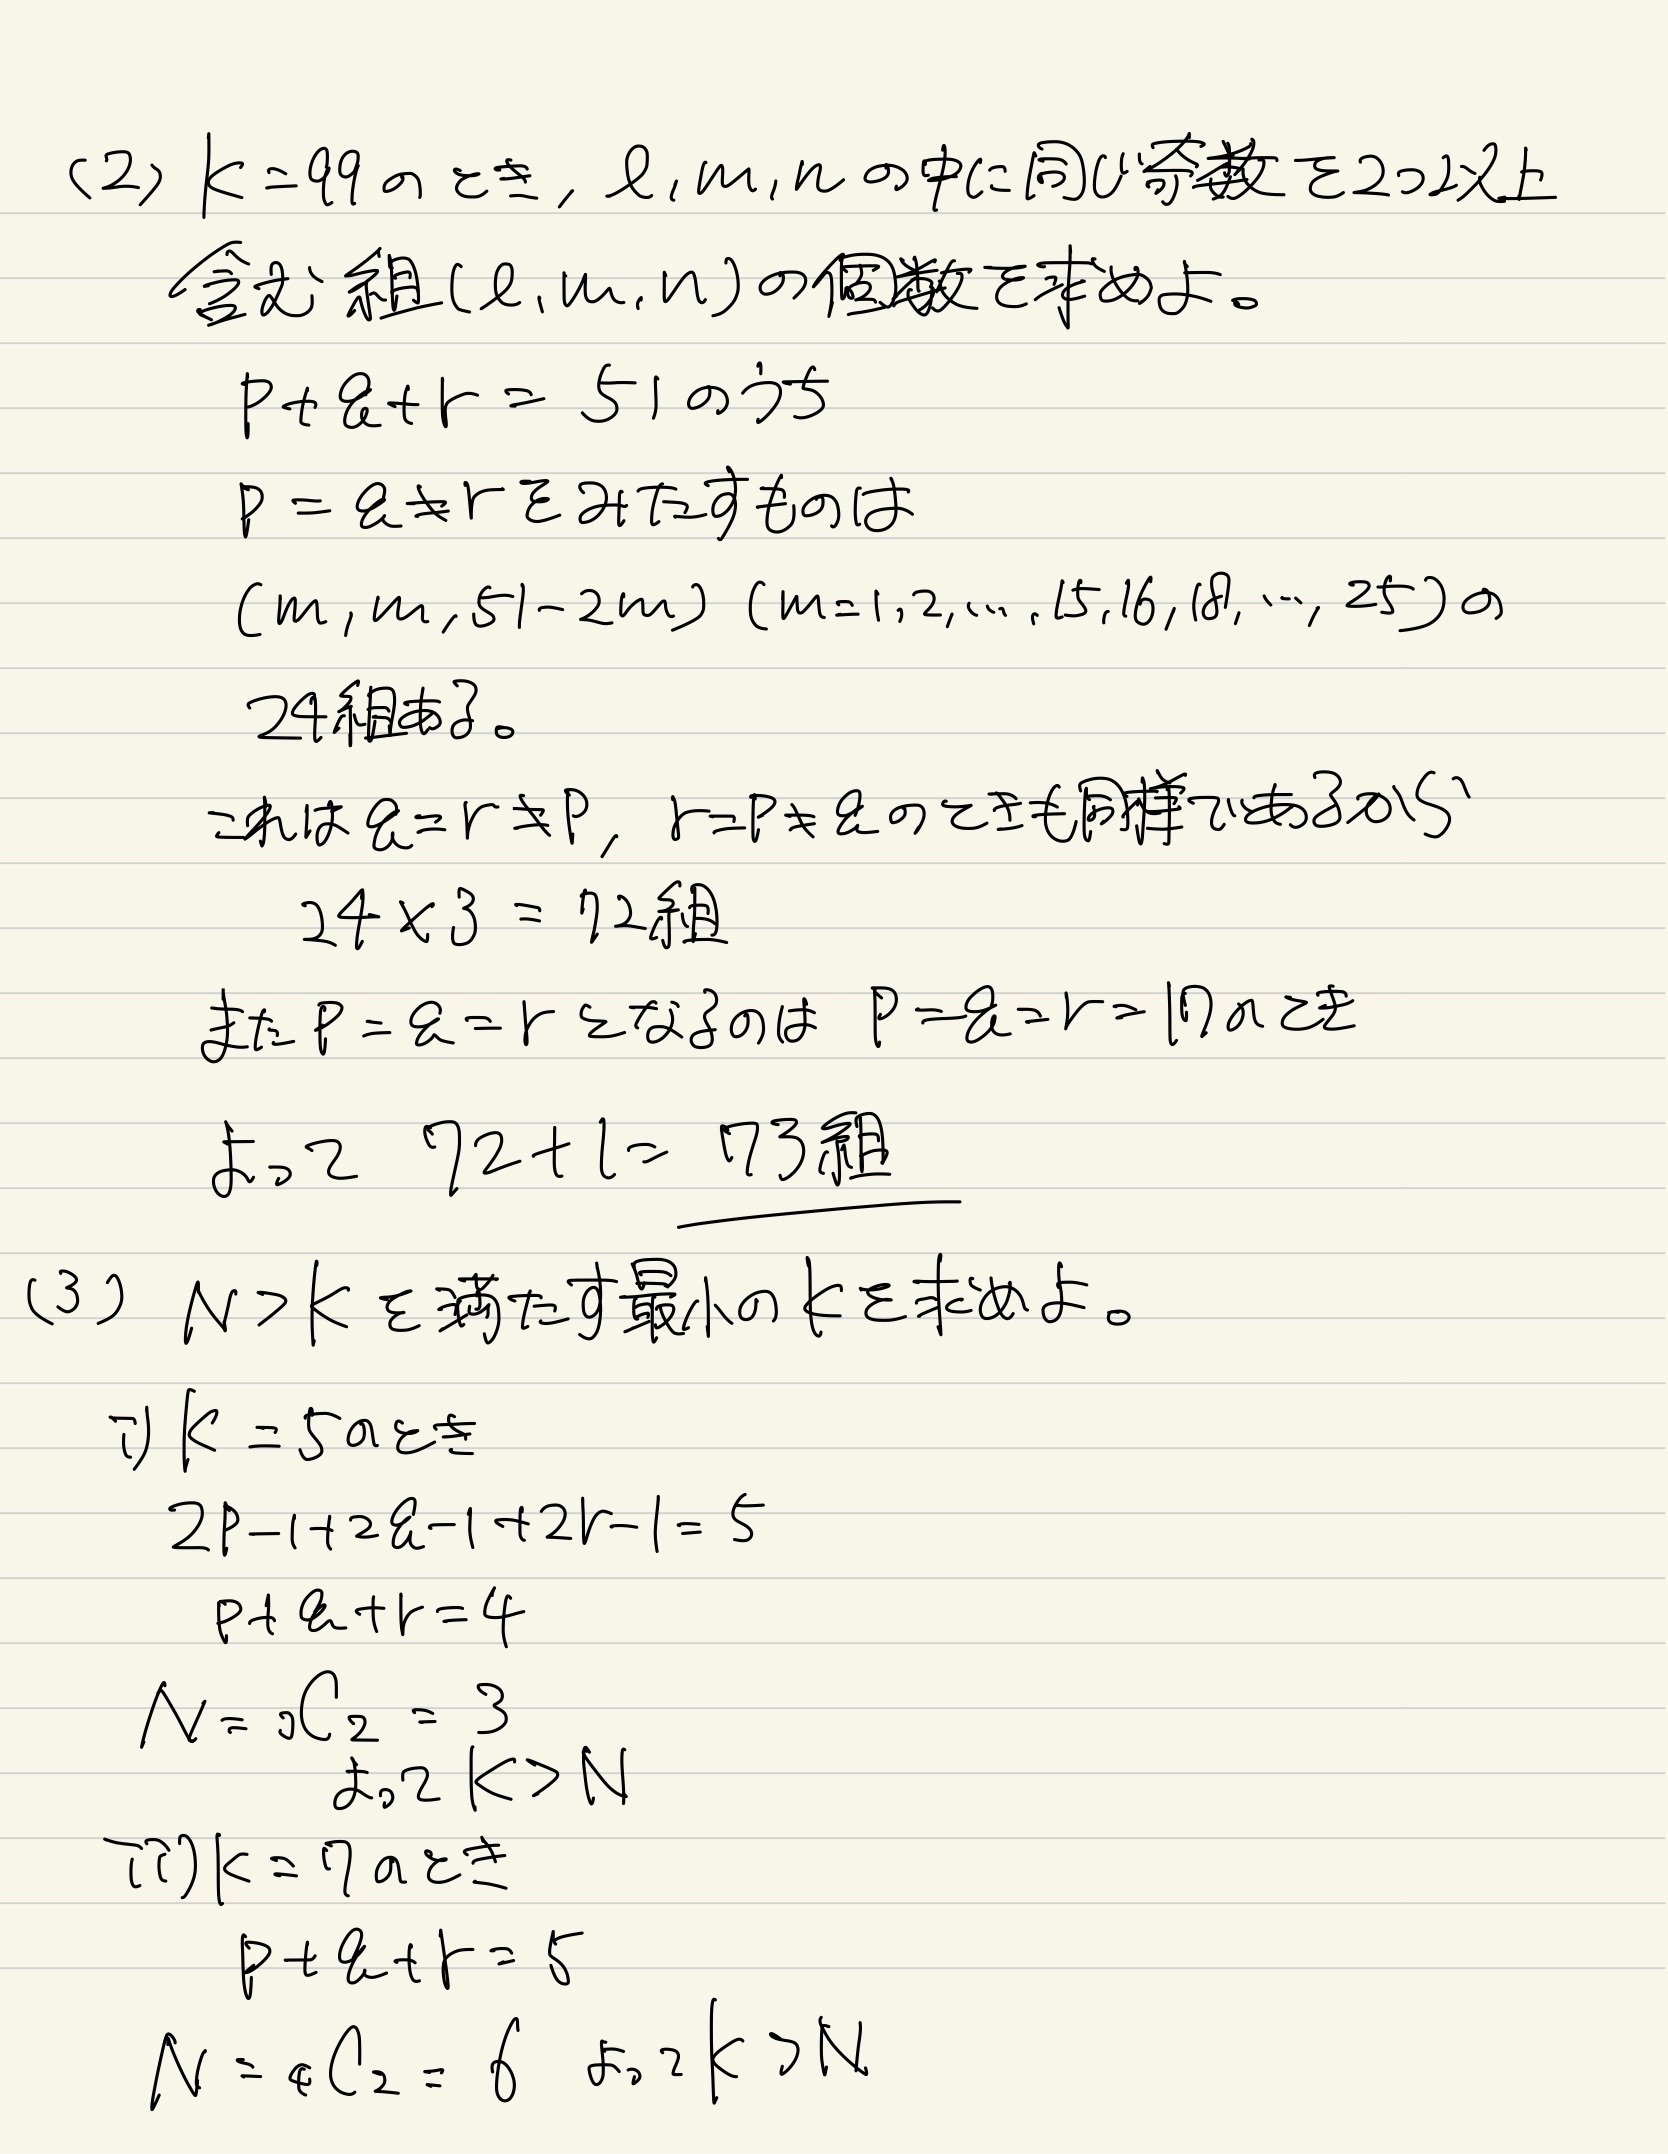 (2) k=99のとき, l, m, n の中に同じ奇数を2つ以上
含む組(l, m, n)の個数を求めよ。
p+q+r = 51のうち
p = q ≠ r をみたすものは
(m, m, 51-2m) (m=1, 2, ..., 15, 16, 18, ..., 25)の
24組ある。
これは q=r≠p, r=p≠q のときも同様であるから
24×3 = 72組
また p=q=r となるのは p=q=r=17のとき
よって 72+1= 73組
(3) N>k を満たす最小のkを求めよ。
i) k=5のとき
2p-1+2q-1+2r-1=5
p+q+r=4
N=₃C₂ = 3
よって k>N
ii) k=7のとき
p+q+r=5
N=₄C₂=6 よって k>N